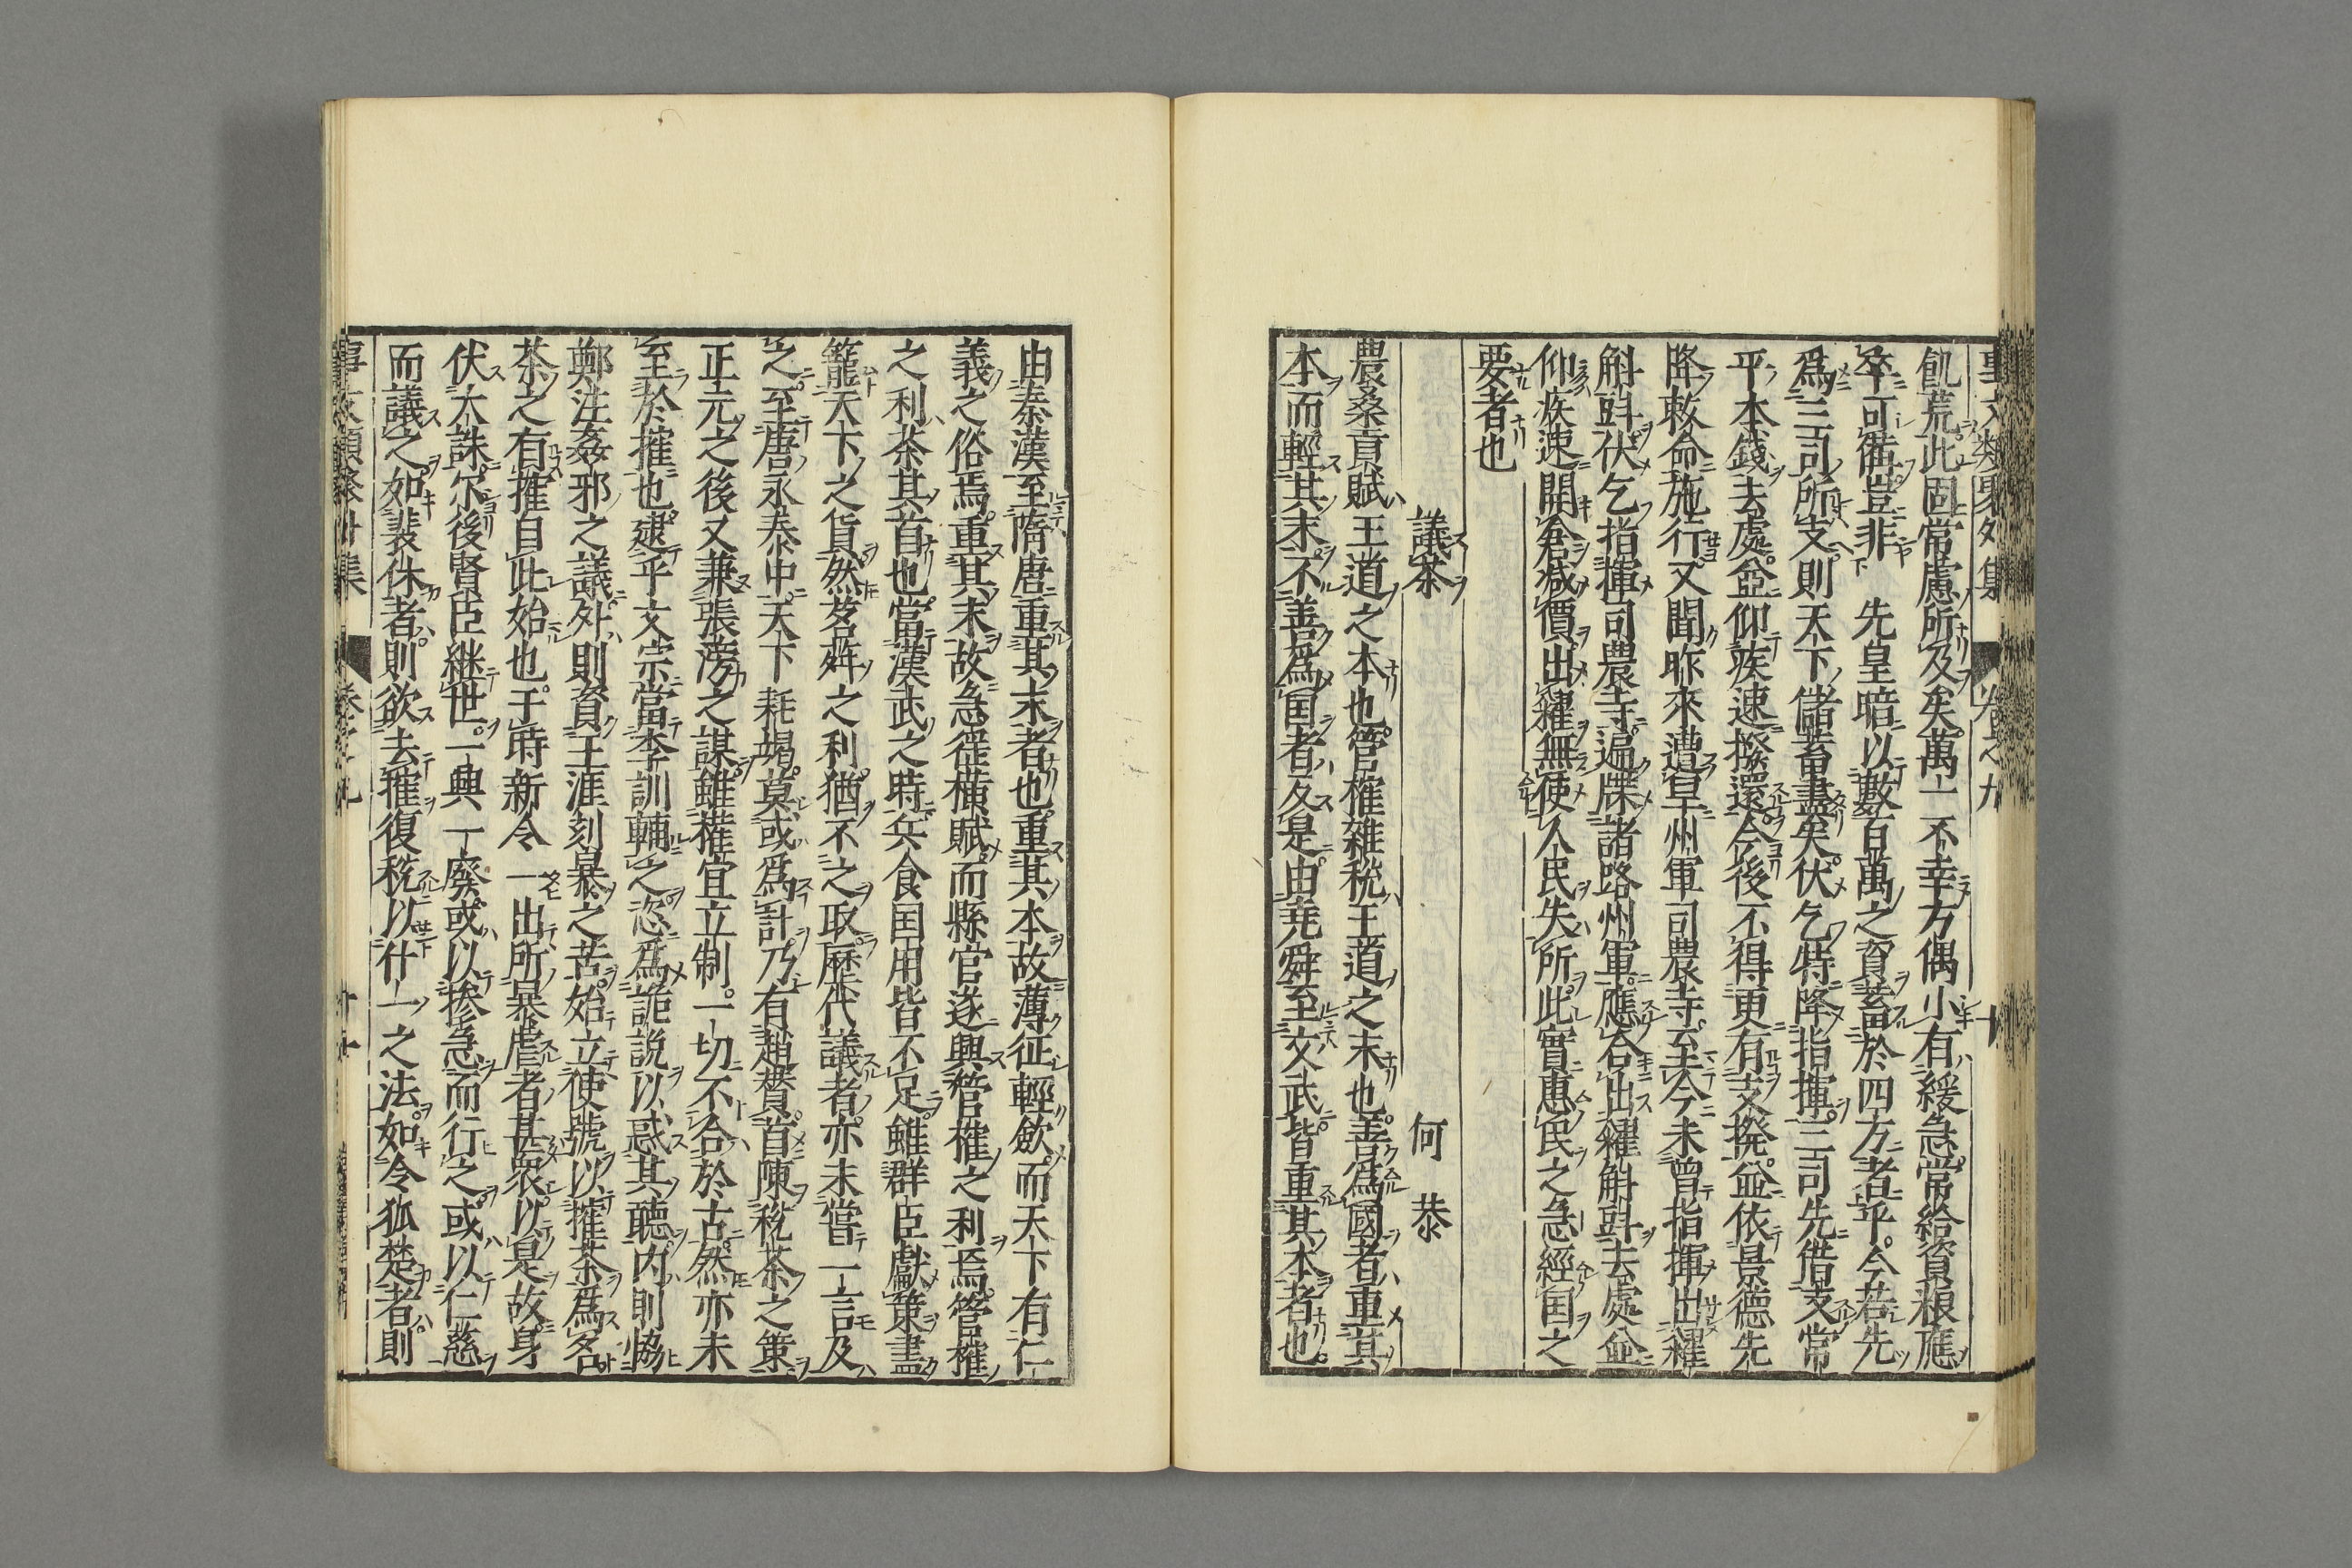 事文類聚外集 卷之九 十
飢荒此固常慮所及矣萬一不幸方偶小有緩急常給資粮應
卒可備豈非 先皇暗以數百萬之資蓄於四方者乎今若先
爲三司所支則天下儲蓄盡矣伏乞特降指揮三司先借支常
平本錢去處並仰疾速撥還今後不得更有支撥並依景德先
降敕命施行又聞昨來遭旱州軍司農寺云至今未曾指揮出糶
斛㪷伏乞指揮司農寺遍牒諸路州軍應合出糶斛㪷去處並
仰疾速開倉減價出糶無使人民失所此實惠民之急經国之
要者也
議茶 何 恭
農桑貢賦王道之本也管榷雜税王道之末也善爲國者重其
本而輕其末不善爲国者反是由堯舜至文武皆重其本者也
由秦漢至隋唐重其末者也重其本故薄征輕斂而天下有仁
義之俗焉重其末故急徭橫賦而縣官遂興管榷之利焉管榷
之利茶其首也當漢武之時兵食国用皆不足雖群臣獻策盡
籠天下之貨然茗荈之利猶不之取歷代議者亦未嘗一言及
之至唐永泰中天下耗竭莫或爲計乃有趙贊首陳税茶之策
正元之後又兼張滂之謀雖權宜立制一切不合於古然亦未
至於榷也逮乎文宗當李訓輔之恣爲詭説以惑其聽内則恊
鄭注姦邪之議外則資王涯刻暴之苦始立使號以榷茶爲名
茶之有榷自此始也于時新令一出所暴虐者甚衆以是故身
伏大誅尓後賢臣継世一興一廢或以掺急而行之或以仁慈
而議之如裴休者則欲去榷復税以什一之法如令狐楚者則
事文類聚外集 卷之九 十一